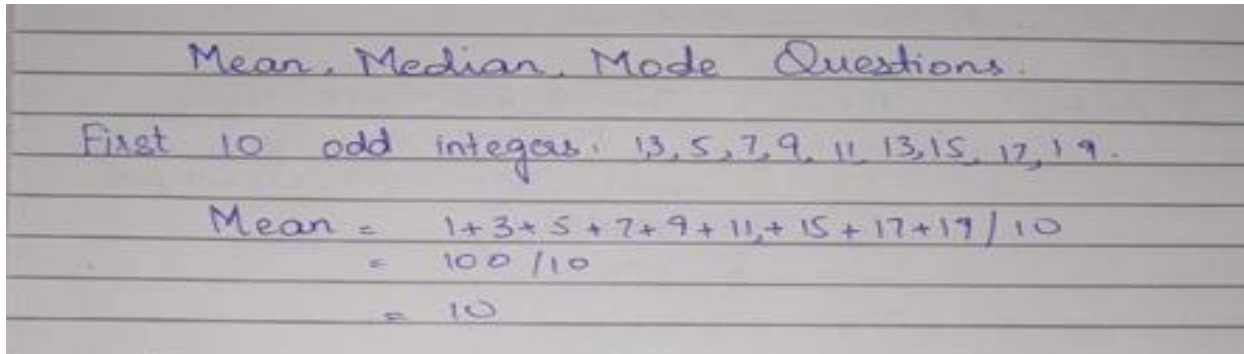 Mean, Median, Mode Questions.
First 10 odd integers: 1,3,5,7,9,11,13,15,17,19.
Mean = 1+3+5+7+9+11,+15+17+19/10
= 100/10
= 10